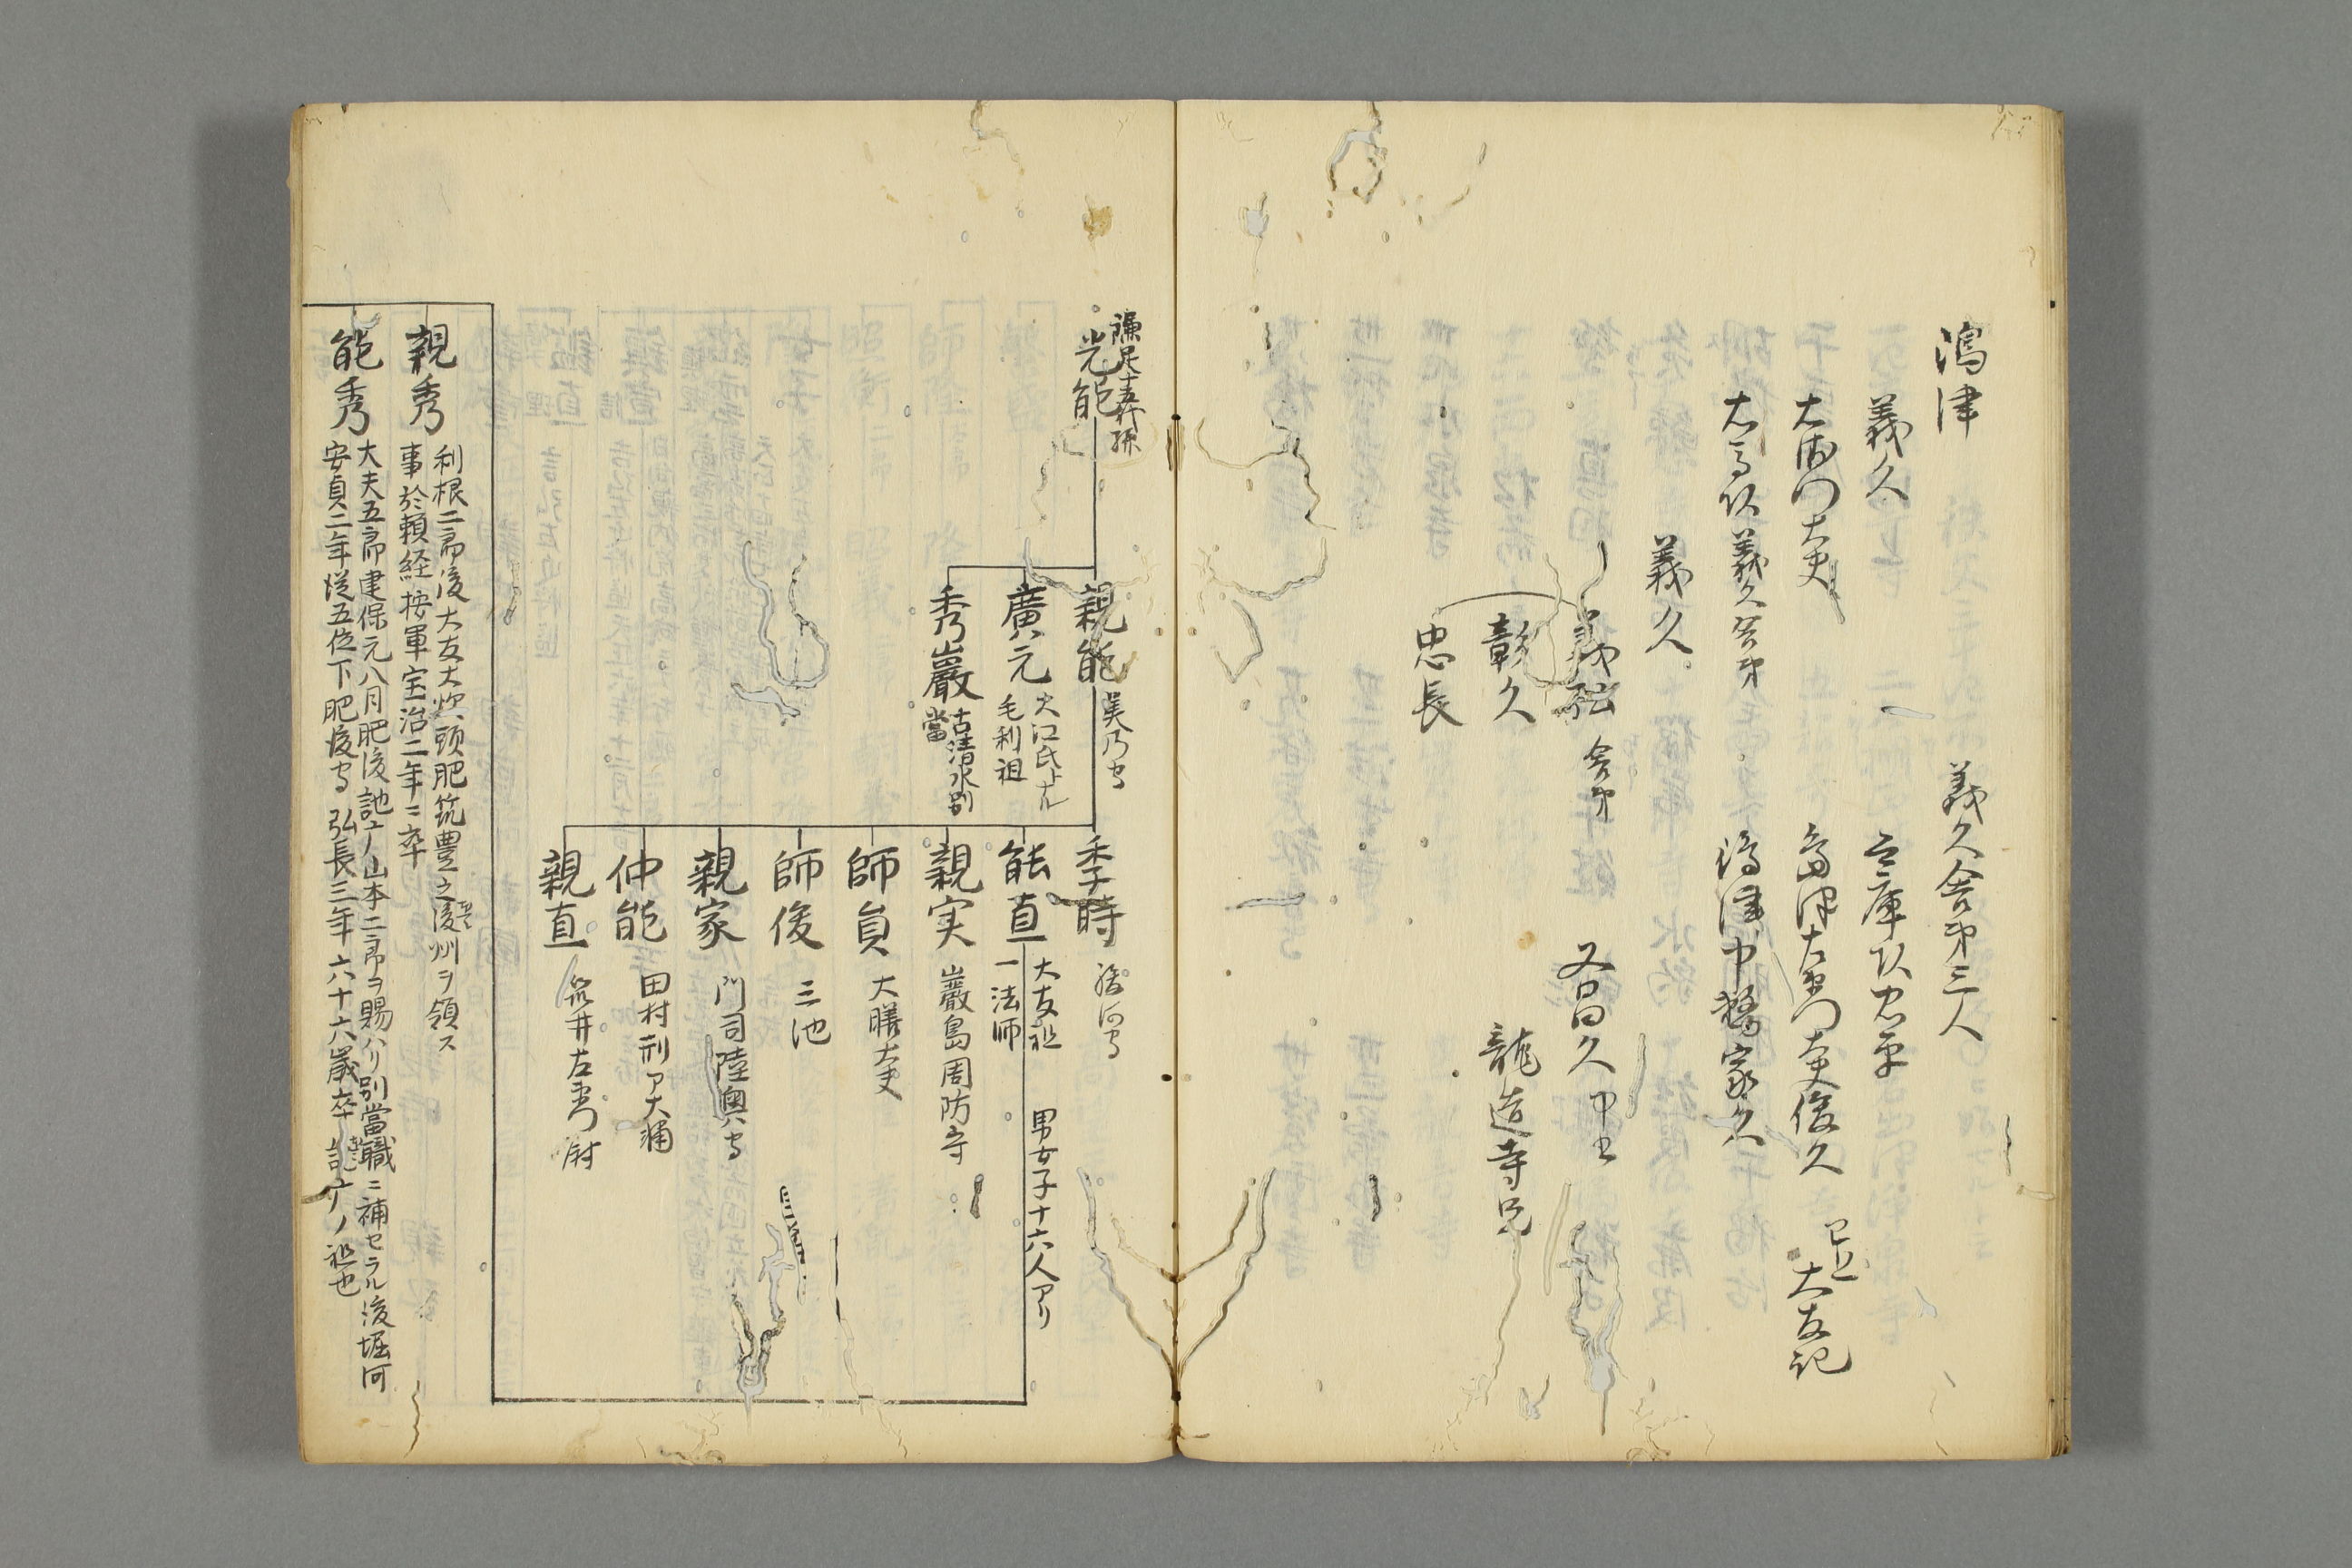 嶋津
義久舎弟三人
義久
兵庫頭忠平
左衛門大夫
嶋津左衛門大夫俊久
已上
大友記
右馬頭義久舎弟
嶋津中務家久
義久
義弘
舎弟
又曰久
彰久
龍造寺兄
忠長
鎌足十五代孫
光能
親能
美乃守
廣元
大江氏ト ナル
毛利祖
秀巖
古清水別
當
季時
駿河守
能直
大友祖
一法師
男女子十六人アリ
親実
巖島周防守
師員
大膳大夫
師俊
三池
親家
門司陸奥守
仲能
田村刑ア大輔
親直
筑井左衛門尉
親秀
利根二郎後大友大炊頭肥筑豊之後州ヲ領ス
事於頼経按軍宝治二年ニ卒
能秀
大夫五郎建保元八月肥後詫ーノ山本二郎ヲ賜ハリ別當職ニ補セラル後堀河
安貞二年従五位下肥後守 弘長三年六十六歳卒 詫ーノ祖也